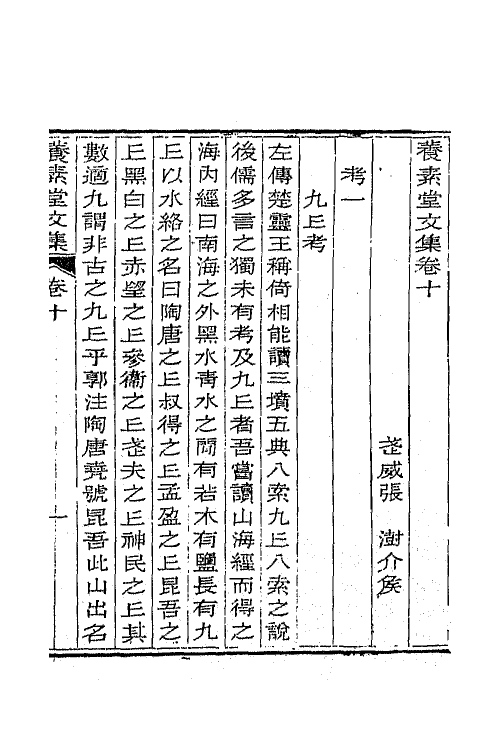 養素堂文集卷十
武威張　澍介侯
考一
九𠀉考
左傳楚靈王稱倚相能讀三墳五典八索九𠀉八索之說
後儒多言之獨未有考及九𠀉者吾嘗讀山海經而得之
海內經曰南海之外黑水青水之間有若木有鹽長有九
𠀉以水絡之名曰陶唐之𠀉叔得之𠀉孟盈之𠀉昆吾之
𠀉黑白之𠀉赤望之𠀉參衞之𠀉武夫之𠀉神民之𠀉其
數適九謂非古之九𠀉乎郭注陶唐堯號昆吾此山出名
養素堂文集　卷十　一